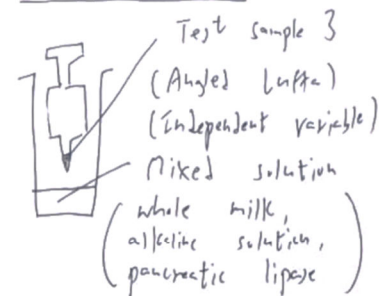 Test sample 3
(Angled luffa)
(Independent variable)
Mixed solution
(whole milk,
alkaline solution,
pancreatic lipase)